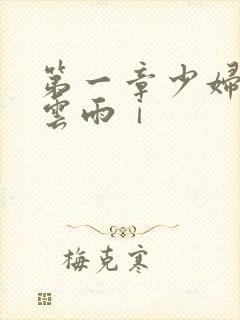 第一章少婦
雲雨｜
梅克寒